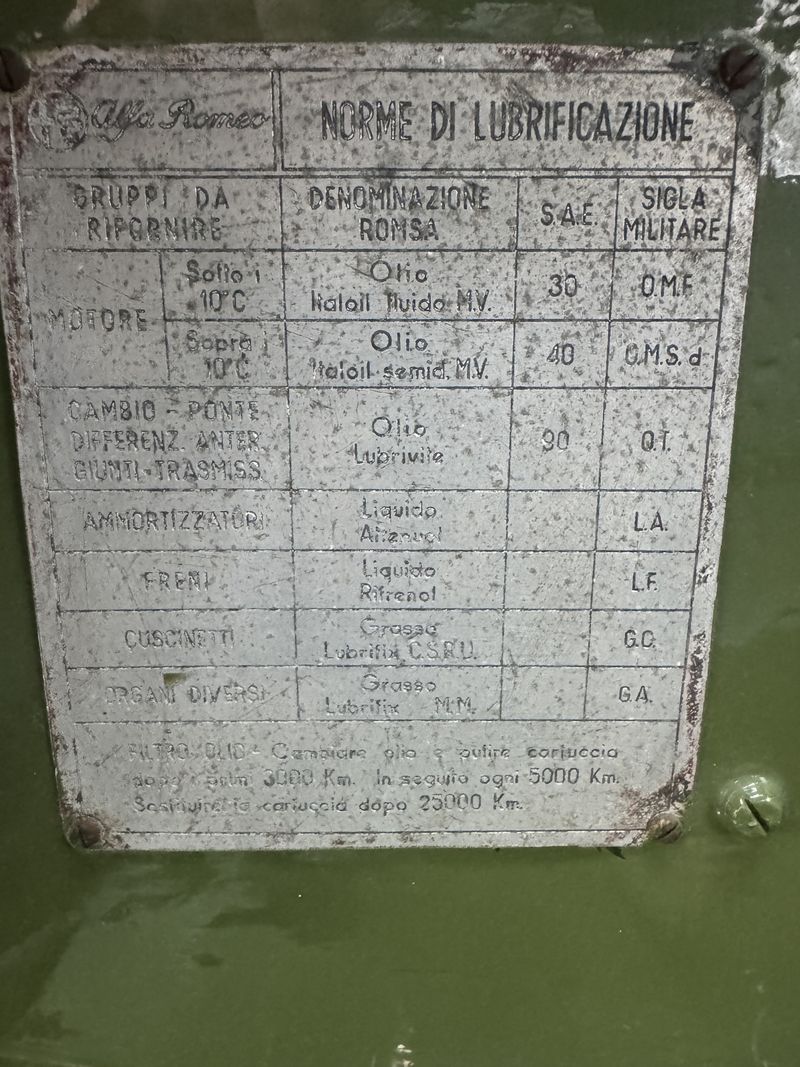 Alfa Romeo
NORME DI LUBRIFICAZIONE
GRUPPI DA
RIFORNIRE
DENOMINAZIONE
ROMSA
S.A.E.
SIGLA
MILITARE
MOTORE
Sotto i
10°C
Olio
Italoil fluido M.V.
30
O.M.F
Sopra i
10°C
Olio
Italoil semid. M.V.
40
O.M.S.d
CAMBIO - PONTE
DIFFERENZ. ANTER.
GIUNTI-TRASMISS.
Olio
Lubrivite
90
O.T.
AMMORTIZZATORI
Liquido
L.A.
FRENI
Liquido
Rifrenol
L.F.
CUSCINETTI
Grasso
Lubrifix C.S.R.U.
G.C.
ORGANI DIVERSI
Grasso
Lubrifix M.M.
G.A.
FILTRO OLIO - Cambiare olio e pulire cartuccia
dopo i primi 3000 Km. In seguito ogni 5000 Km.
Sostituire la cartuccia dopo 25000 Km.